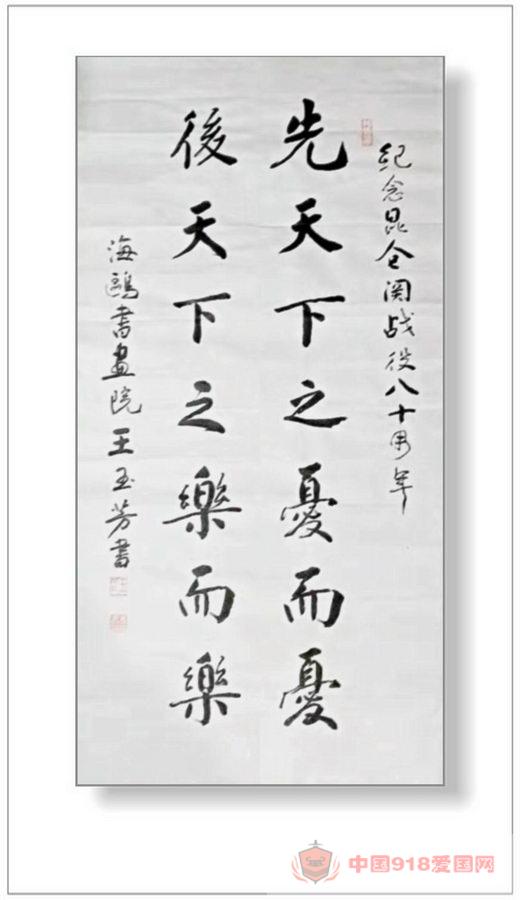 纪念昆仑关战役八十周年
先天下之憂而憂
後天下之樂而樂
海鷗書畫院王玉芳書
中国918爱国网